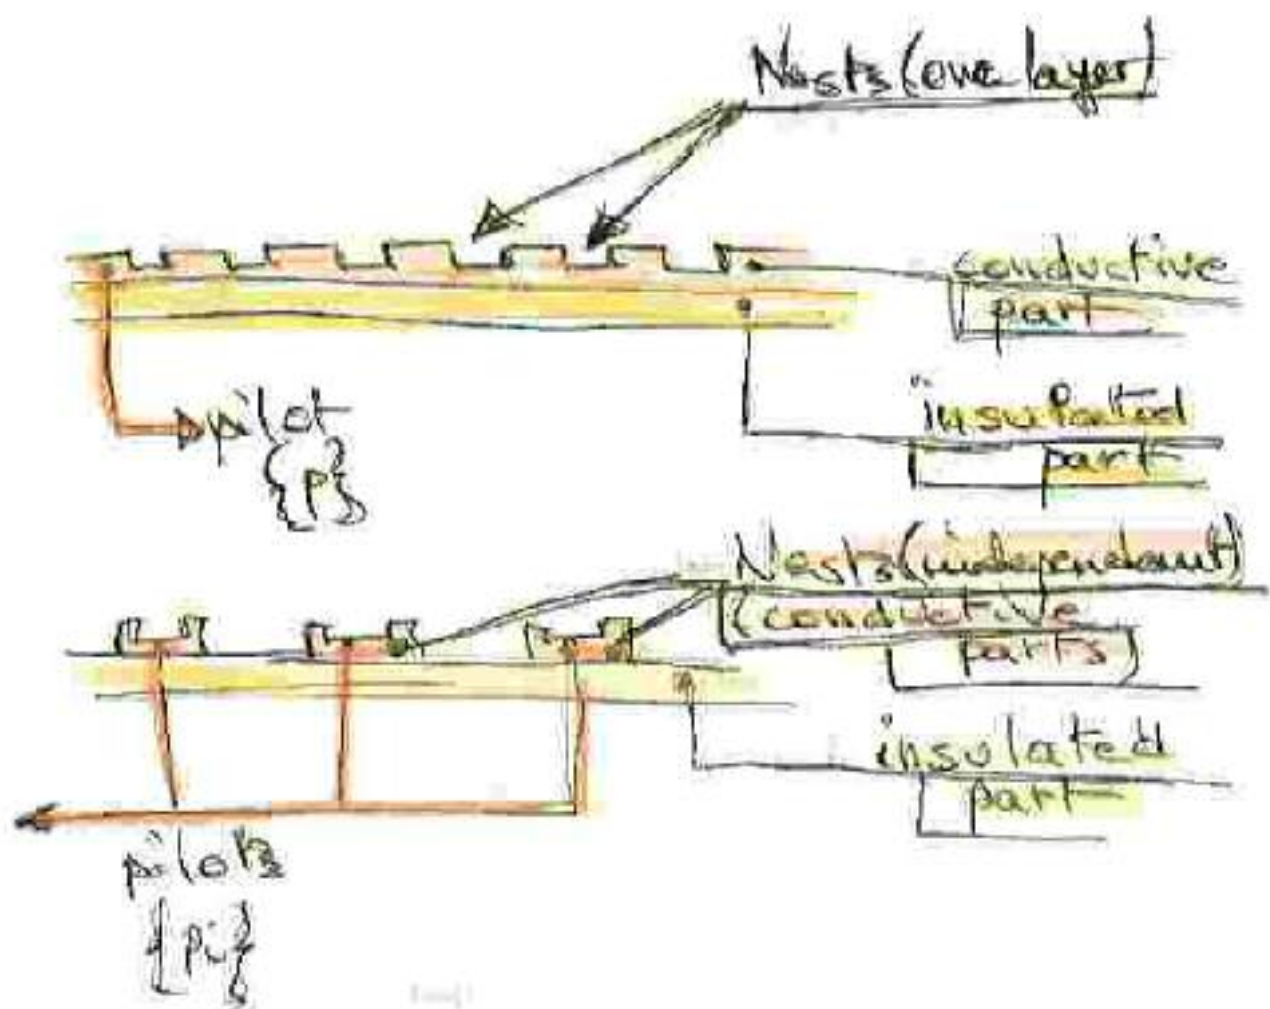 Nests (one layer)
conductive
part
pilot
{p}
insulated
part
Nests (independant)
(conductive
parts)
insulated
part
pilots
{pi}